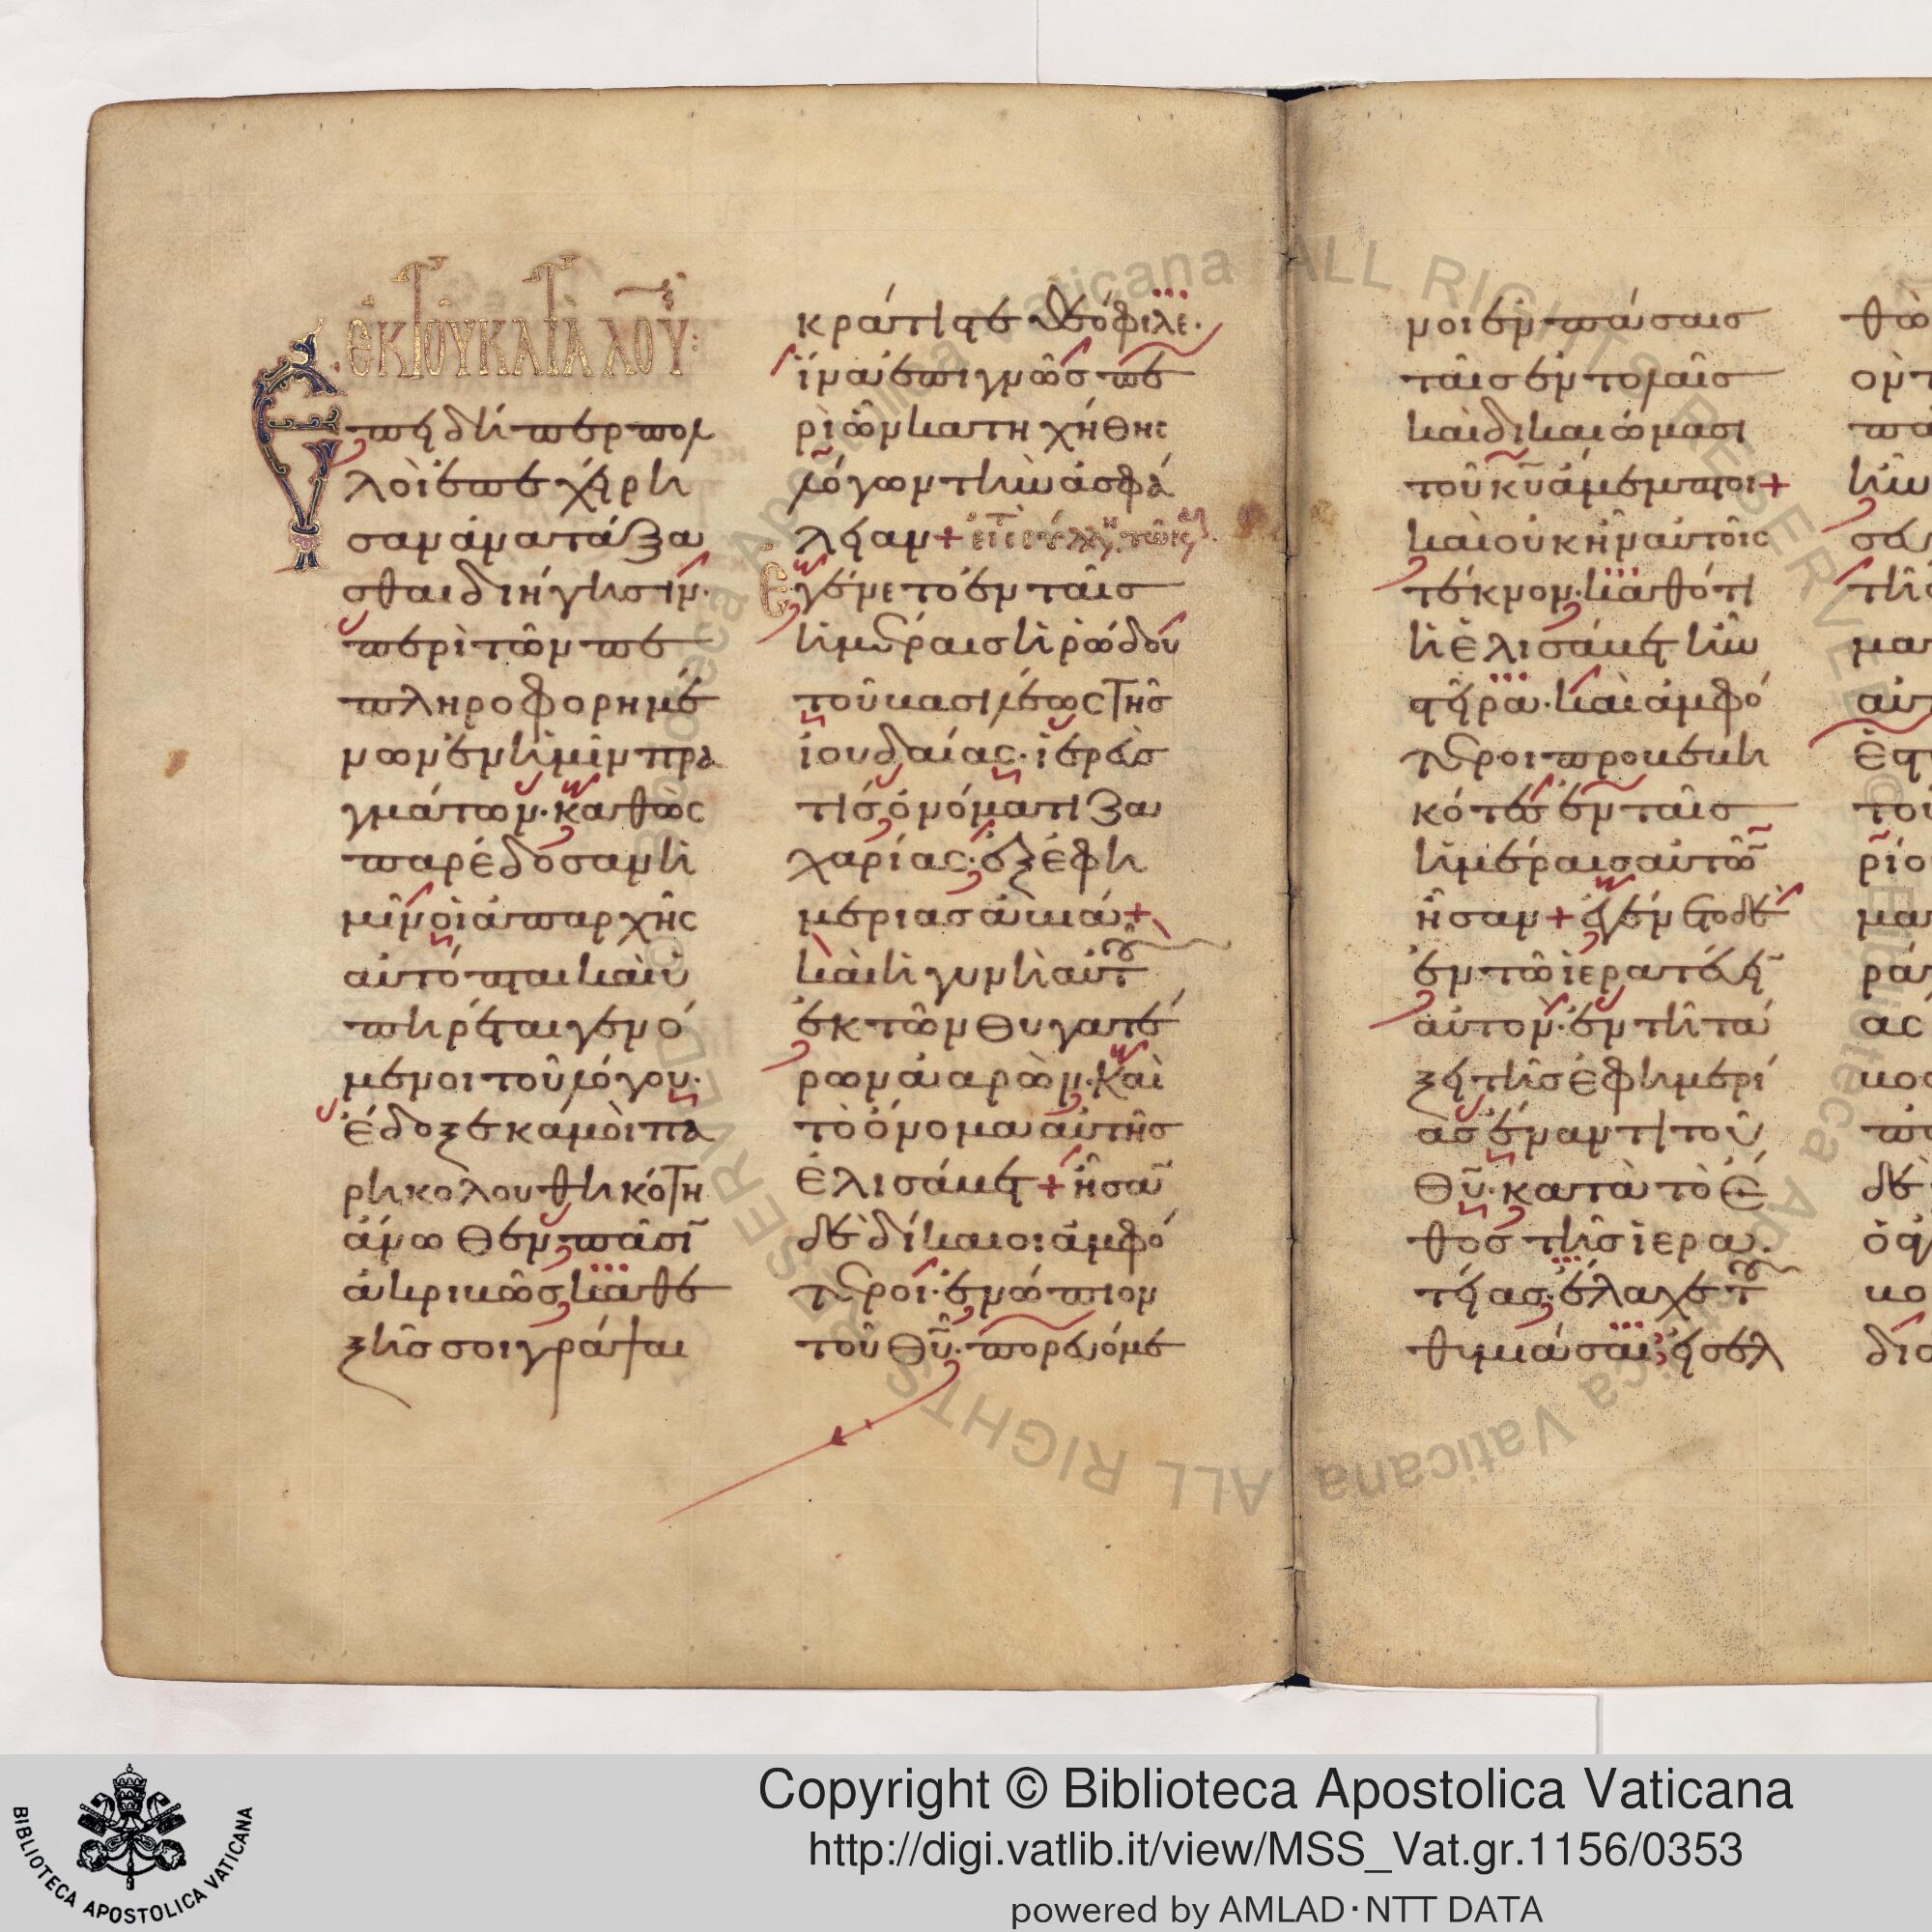 ἐκ τοῦ κατὰ λου
Ἐπειδήπερ πολ
λοὶ ἐπεχείρη
σαν ἀνατάξα
σθαι διήγησιν·
περὶ τῶν πε
πληροφορημέ
νων ἐν ἡμῖν πρα
γμάτων· καθὼς
παρέδοσαν ἡ
μῖν οἱ ἀπαρχῆς
αὐτόπται καὶ ὑ
πηρέται γενό
μενοι τοῦ λόγου·
ἔδοξε κἀμοὶ πα
ρηκολουθηκότι
ἄνωθεν πᾶσῖ
ἀκριβῶς καθε
ξῆς σοι γράψαι
κράτιστε Θεόφιλε·
ἵνα ἐπιγνῷς πε
ρὶ ὧν κατηχήθης
λόγων τὴν ἀσφά
λειαν +
Ἐγένετο ἐν ταῖς
ἡμέραις ἡρώδου
τοῦ βασιλέως τῆς
ἰουδαίας· ἱερεύς
τις ὀνόματι Ζα
χαρίας· ἐξ ἐφη
μερίας ἀβιά +
καὶ ἡ γυνὴ αὐτοῦ
ἐκ τῶν θυγατέ
ρων ἀαρών· καὶ
τὸ ὄνομα αὐτῆς
ἐλισάβετ + ἦσᾱ
δὲ δίκαιοι ἀμφό
τεροι· ἐνώπιον
τοῦ Θῡ· πορευόμε
νοι ἐν πάσαις
ταῖς ἐντολαῖς
καὶ δικαιώμασι
τοῦ κῡ ἄμεμπτοι +
καὶ οὐκ ἦν αὐτοῖς
τέκνον· καθότι
ἡ ἐλισάβετ ἦν
στεῖρα· καὶ ἀμφό
τεροι προβεβη
κότες ἐν ταῖς
ἡμέραις αὐτῶ̄
ἦσαν + ἐγένετο δὲ
ἐν τῷ ἱερατεύεῑ
αὐτόν· ἐν τῇ τά
ξει τῆς ἐφημερί
ας ἔναντι τοῦ
Θῡ· κατὰ τὸ ἔ
θος τῆς ἱερα
τείας· ἔλαχε τοῦ
θυμιάσαι· εἰσελ